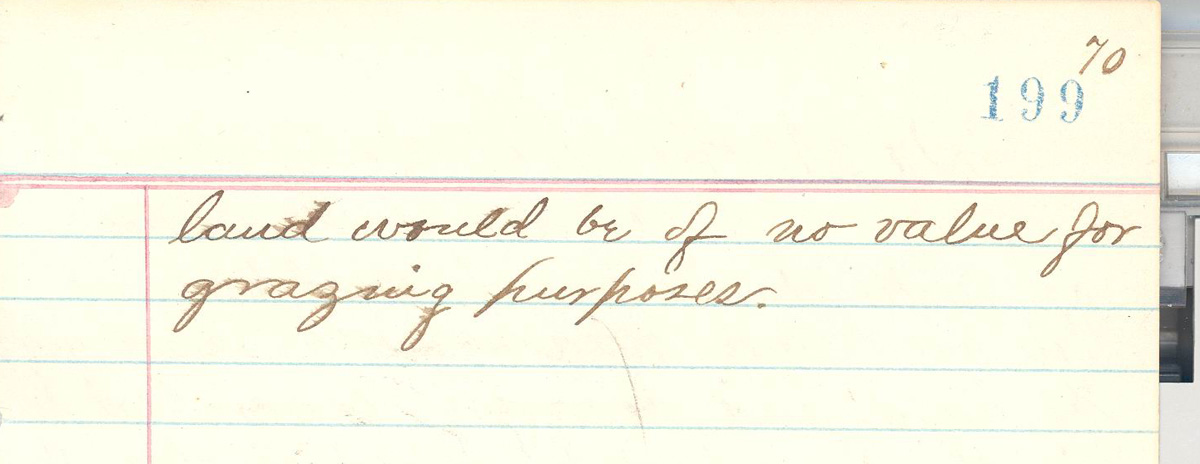 70
199
land would be of no value for
grazing purposes.